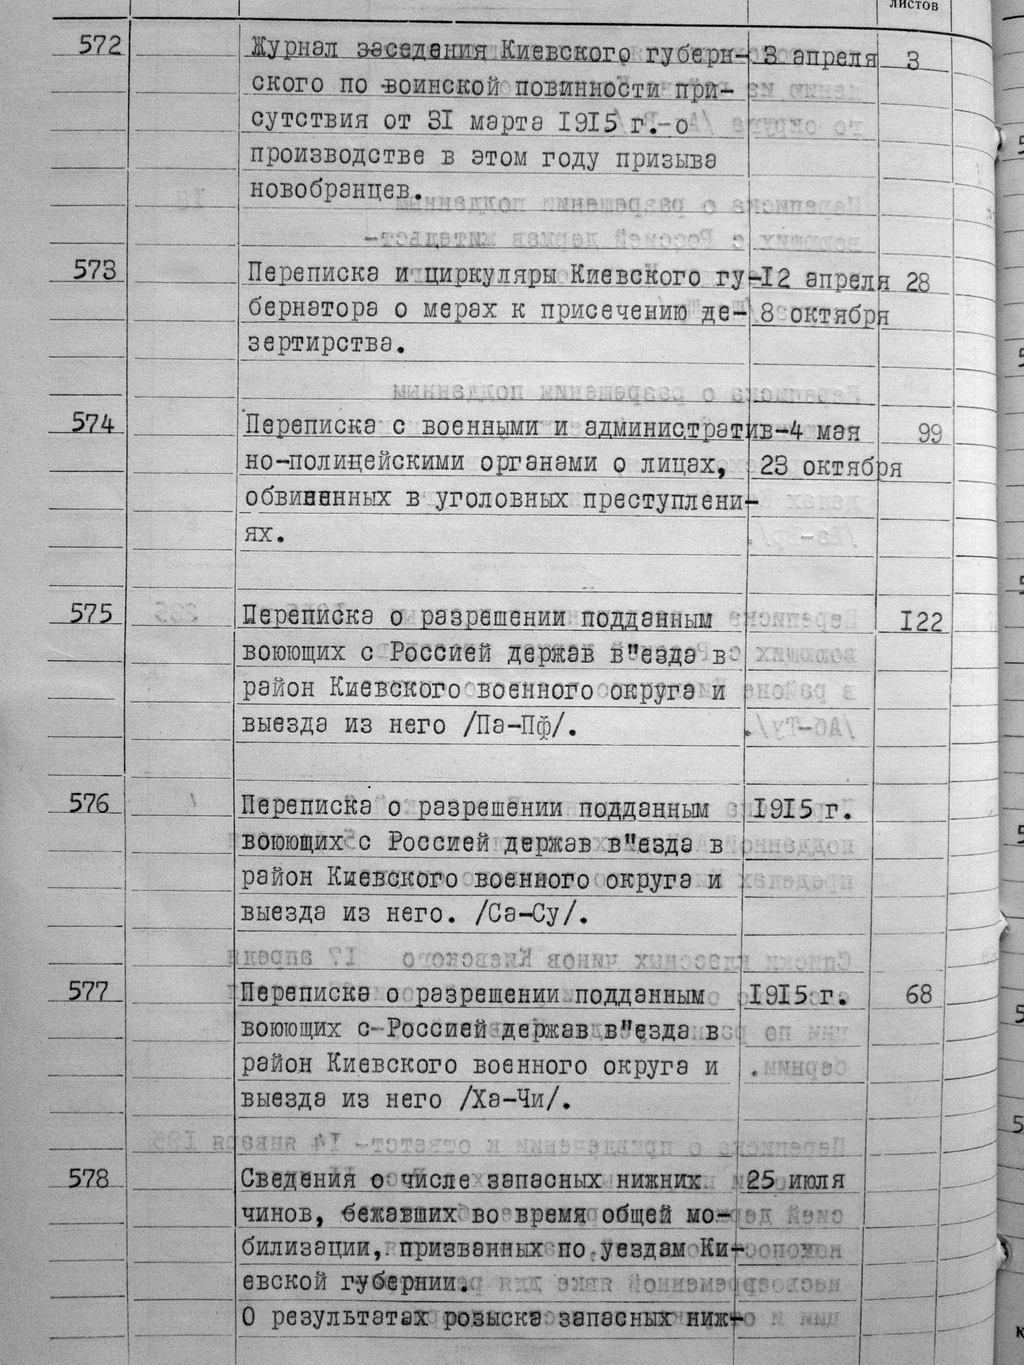 листов
572 Журнал заседания Киевского губерн- 3 апреля 3
ского по воинской повинности при-
сутствия от 31 марта 1915 г.-о
производстве в этом году призыва
новобранцев.
573 Переписка и циркуляры Киевского гу- 12 апреля 28
бернатора о мерах к присечению де- 8 октября
зертирства.
574 Переписка с военными и административ- 4 мая 99
но-полицейскими органами о лицах, 23 октября
обвиненных в уголовных преступлени-
ях.
575 Переписка о разрешении подданным 122
воюющих с Россией держав в"езда в
район Киевского военного округа и
выезда из него /Па-Пф/.
576 Переписка о разрешении подданным 1915 г.
воюющих с Россией держав в"езда в
район Киевского военного округа и
выезда из него. /Са-Су/.
577 Переписка о разрешении подданным 1915 г. 68
воюющих с Россией держав в"езда в
район Киевского военного округа и
выезда из него /Ха-Чи/.
578 Сведения о числе запасных нижних 25 июля
чинов, бежавших во время общей мо-
билизации, призванных по уездам Ки-
евской губернии.
О результатах розыска запасных ниж-